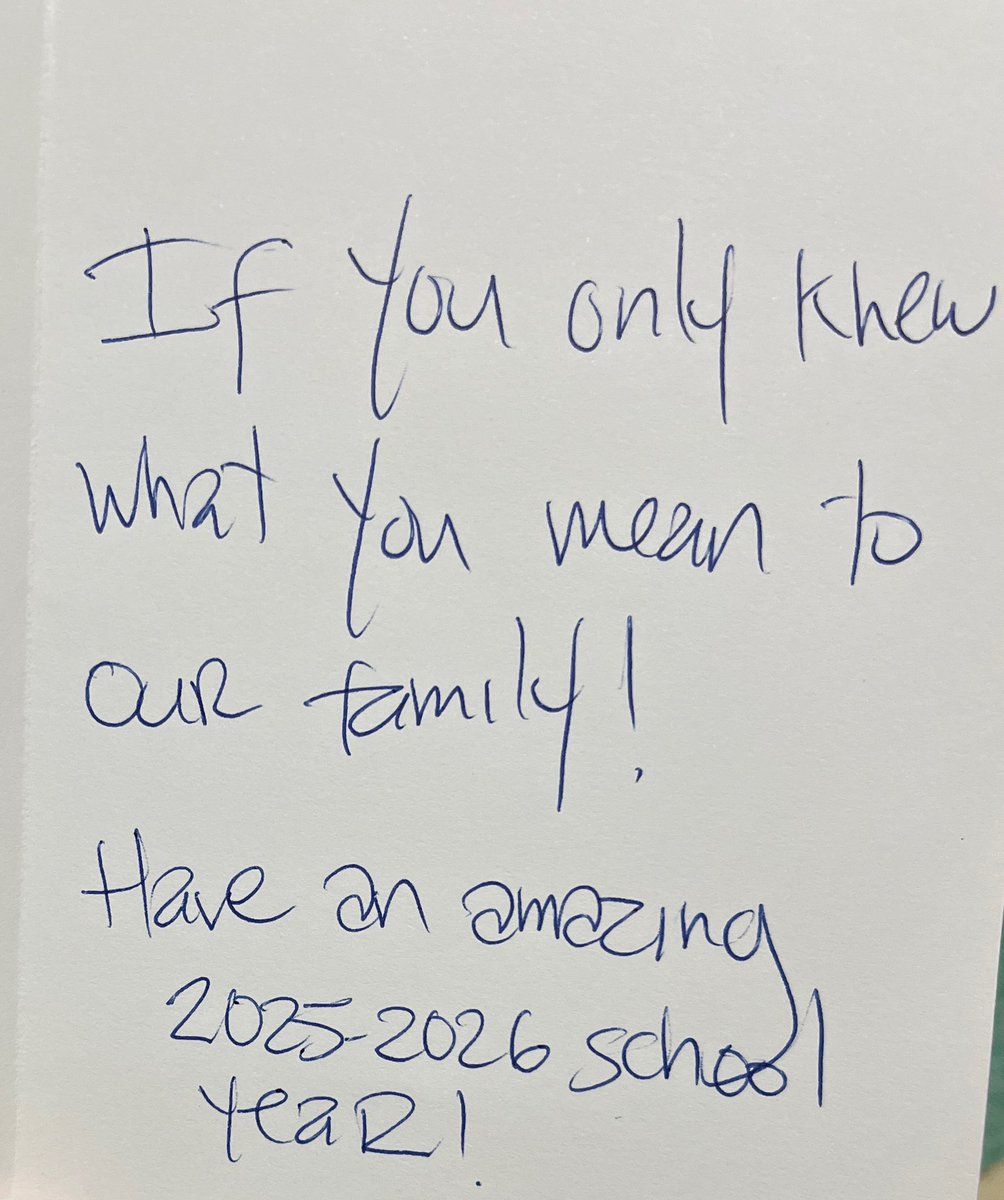 If you only knew
what you mean to
our family!
Have an amazing
2025-2026 school
year!